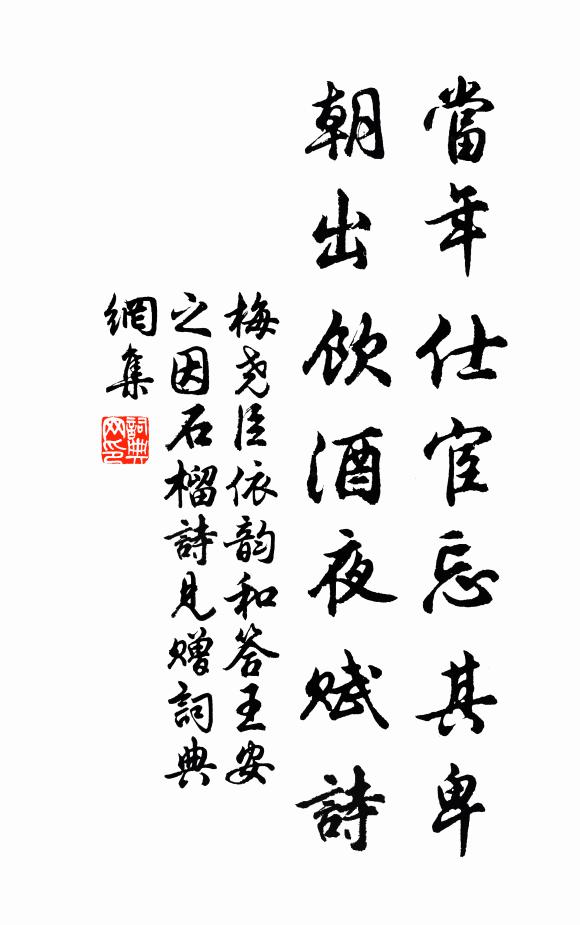 當年仕宦忘其卑
朝出飲酒夜賦詩
梅堯臣依韵和答王安
之因石榴詩見贈詞典
網集
詞典
网印